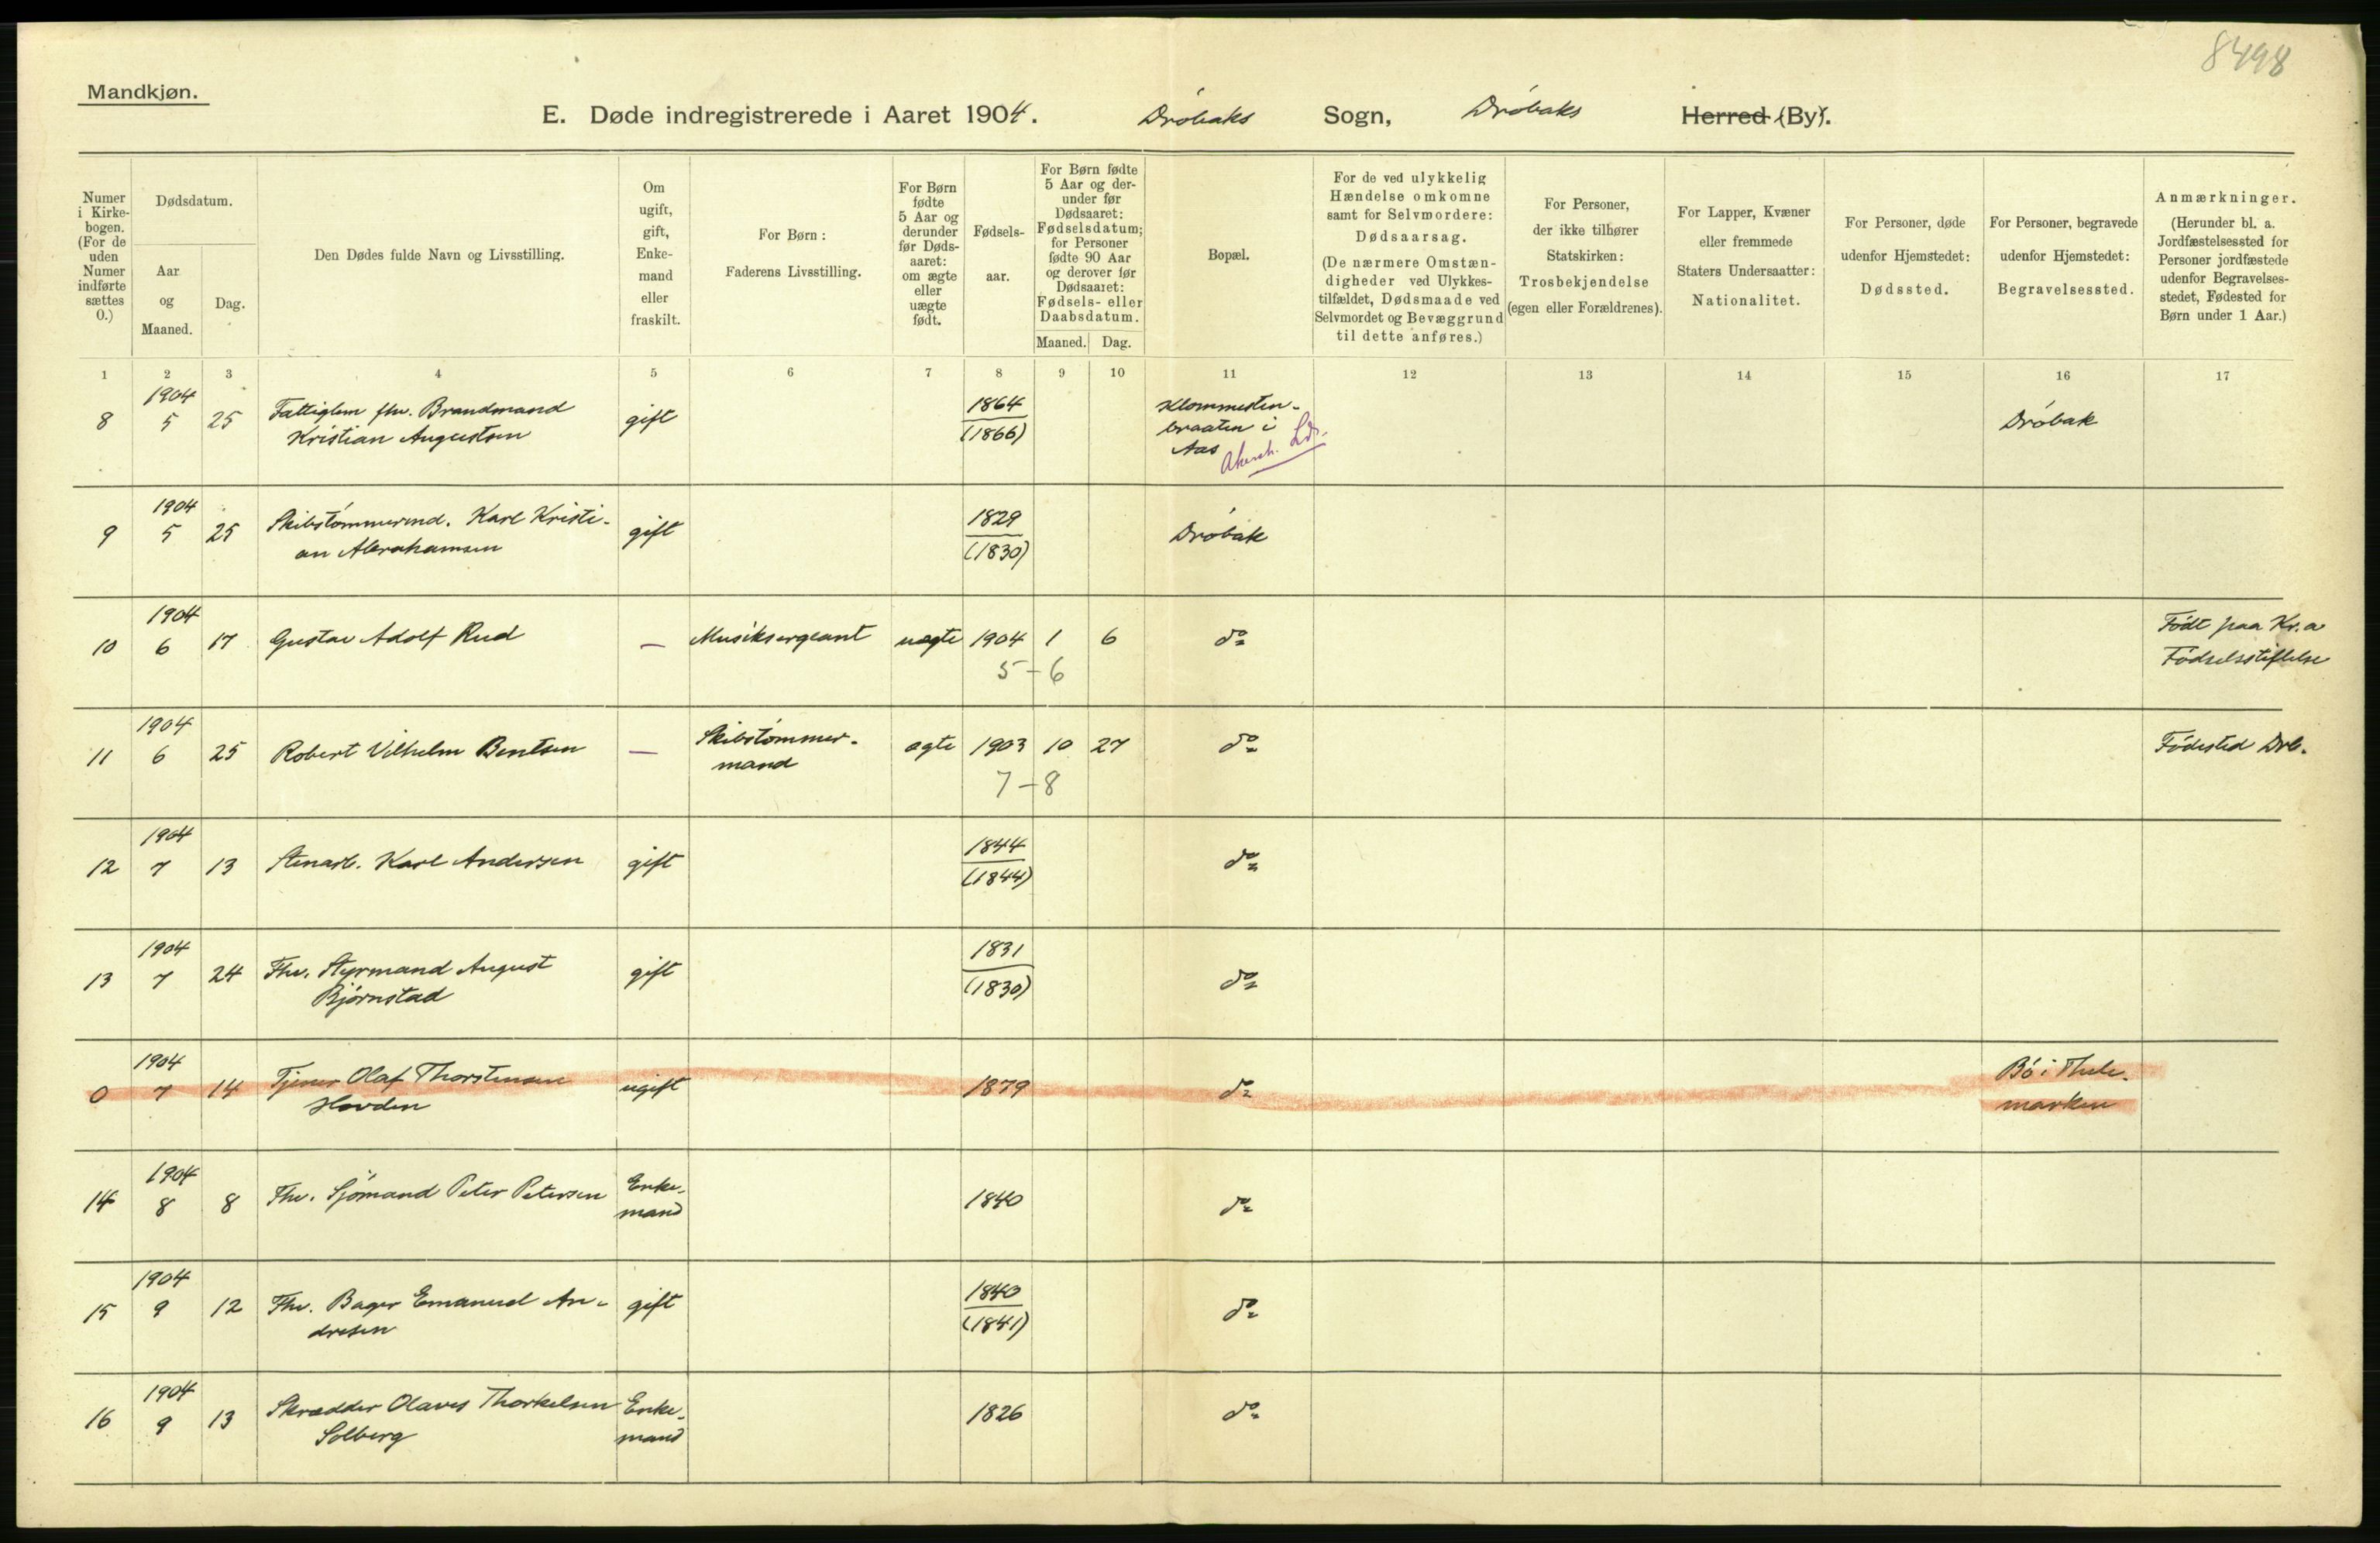 8498
Mandkjøn.
E. Døde indregistrerede i Aaret 1904. Drøbaks Sogn, Drøbaks Herred (By).
Numer i Kirkebogen. (For de uden Numer indførte sættes 0.)
Dødsdatum.
Aar og Maaned.
Dag.
Den Dødes fulde Navn og Livsstilling.
Om ugift, gift, Enkemand eller fraskilt.
For Børn:
Faderens Livsstilling.
For Børn fødte 5 Aar og derunder før Dødsaaret: om ægte eller uægte født.
Fødselsaar.
For Børn fødte 5 Aar og derunder før Dødsaaret: Fødselsdatum; for Personer fødte 90 Aar og derover før Dødsaaret: Fødsels- eller Daabsdatum.
Maaned. Dag.
Bopæl.
For de ved ulykkelig Hændelse omkomne samt for Selvmordere: Dødsaarsag. (De nærmere Omstændigheder ved Ulykkestilfældet, Dødsmaade ved Selvmordet og Bevæggrund til dette anføres.)
For Personer, der ikke tilhører Statskirken: Trosbekjendelse (egen eller Forældrenes).
For Lapper, Kvæner eller fremmede Staters Undersaatter: Nationalitet.
For Personer, døde udenfor Hjemstedet: Dødssted.
For Personer, begravede udenfor Hjemstedet: Begravelsessted.
Anmærkninger. (Herunder bl. a. Jordfæstelsessted for Personer jordfæstede udenfor Begravelsesstedet, Fødested for Børn under 1 Aar.)
1 2 3 4 5 6 7 8 9 10 11 12 13 14 15 16 17
8 1904 5 25 Fattiglem fhv. Brandmand Kristian Augustsen gift 1864 (1866) Klommesten-braaten i Aas Akersh. Lds. Drøbak
9 1904 5 25 Skibstømmermd. Karl Kristian Abrahamsen gift 1829 (1830) Drøbak
10 1904 6 17 Gustav Adolf Rud — Musiksergeant uægte 1904 1 6 do Født paa Kr.a Fødselsstiftelse
5-6
11 1904 6 25 Robert Vilhelm Bentsen — Skibstømmer-mand ægte 1903 10 27 do Fødested Drb.
7-8
12 1904 7 13 Stenarb. Karl Andersen gift 1844 (1844) do
13 1904 7 24 Fhv. Styrmand August Bjørnstad gift 1831 (1830) do
0 1904 7 14 Tjener Olaf Thorstensen Hovden ugift 1879 do Bø i Thele-marken
14 1904 8 8 Fhv. Sjømand Peter Petersen Enke-mand 1840 do
15 1904 9 12 Fhv. Bager Emanuel An-dresen gift 1840 (1841) do
16 1904 9 13 Skrædder Olaves Thorkelsen Solberg Enke-mand 1826 do